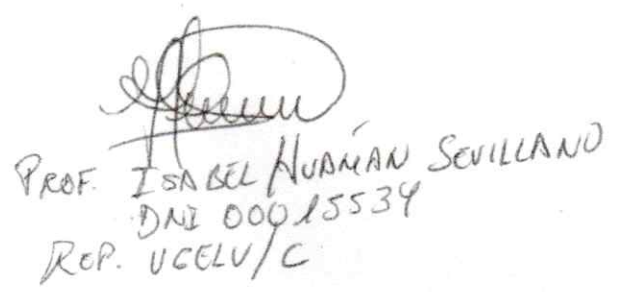 PROF. ISABEL HUAMÁN SEVILLANO
DNI 00015534
REP. UGELV/C